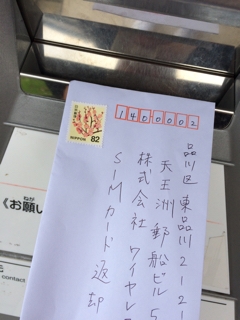 NIPPON 82
1400002
品川区東品川2-2-
天王洲郵船ビル5
株式会社ワイヤレ
SIMカード返却
ねが
《お願い
contact